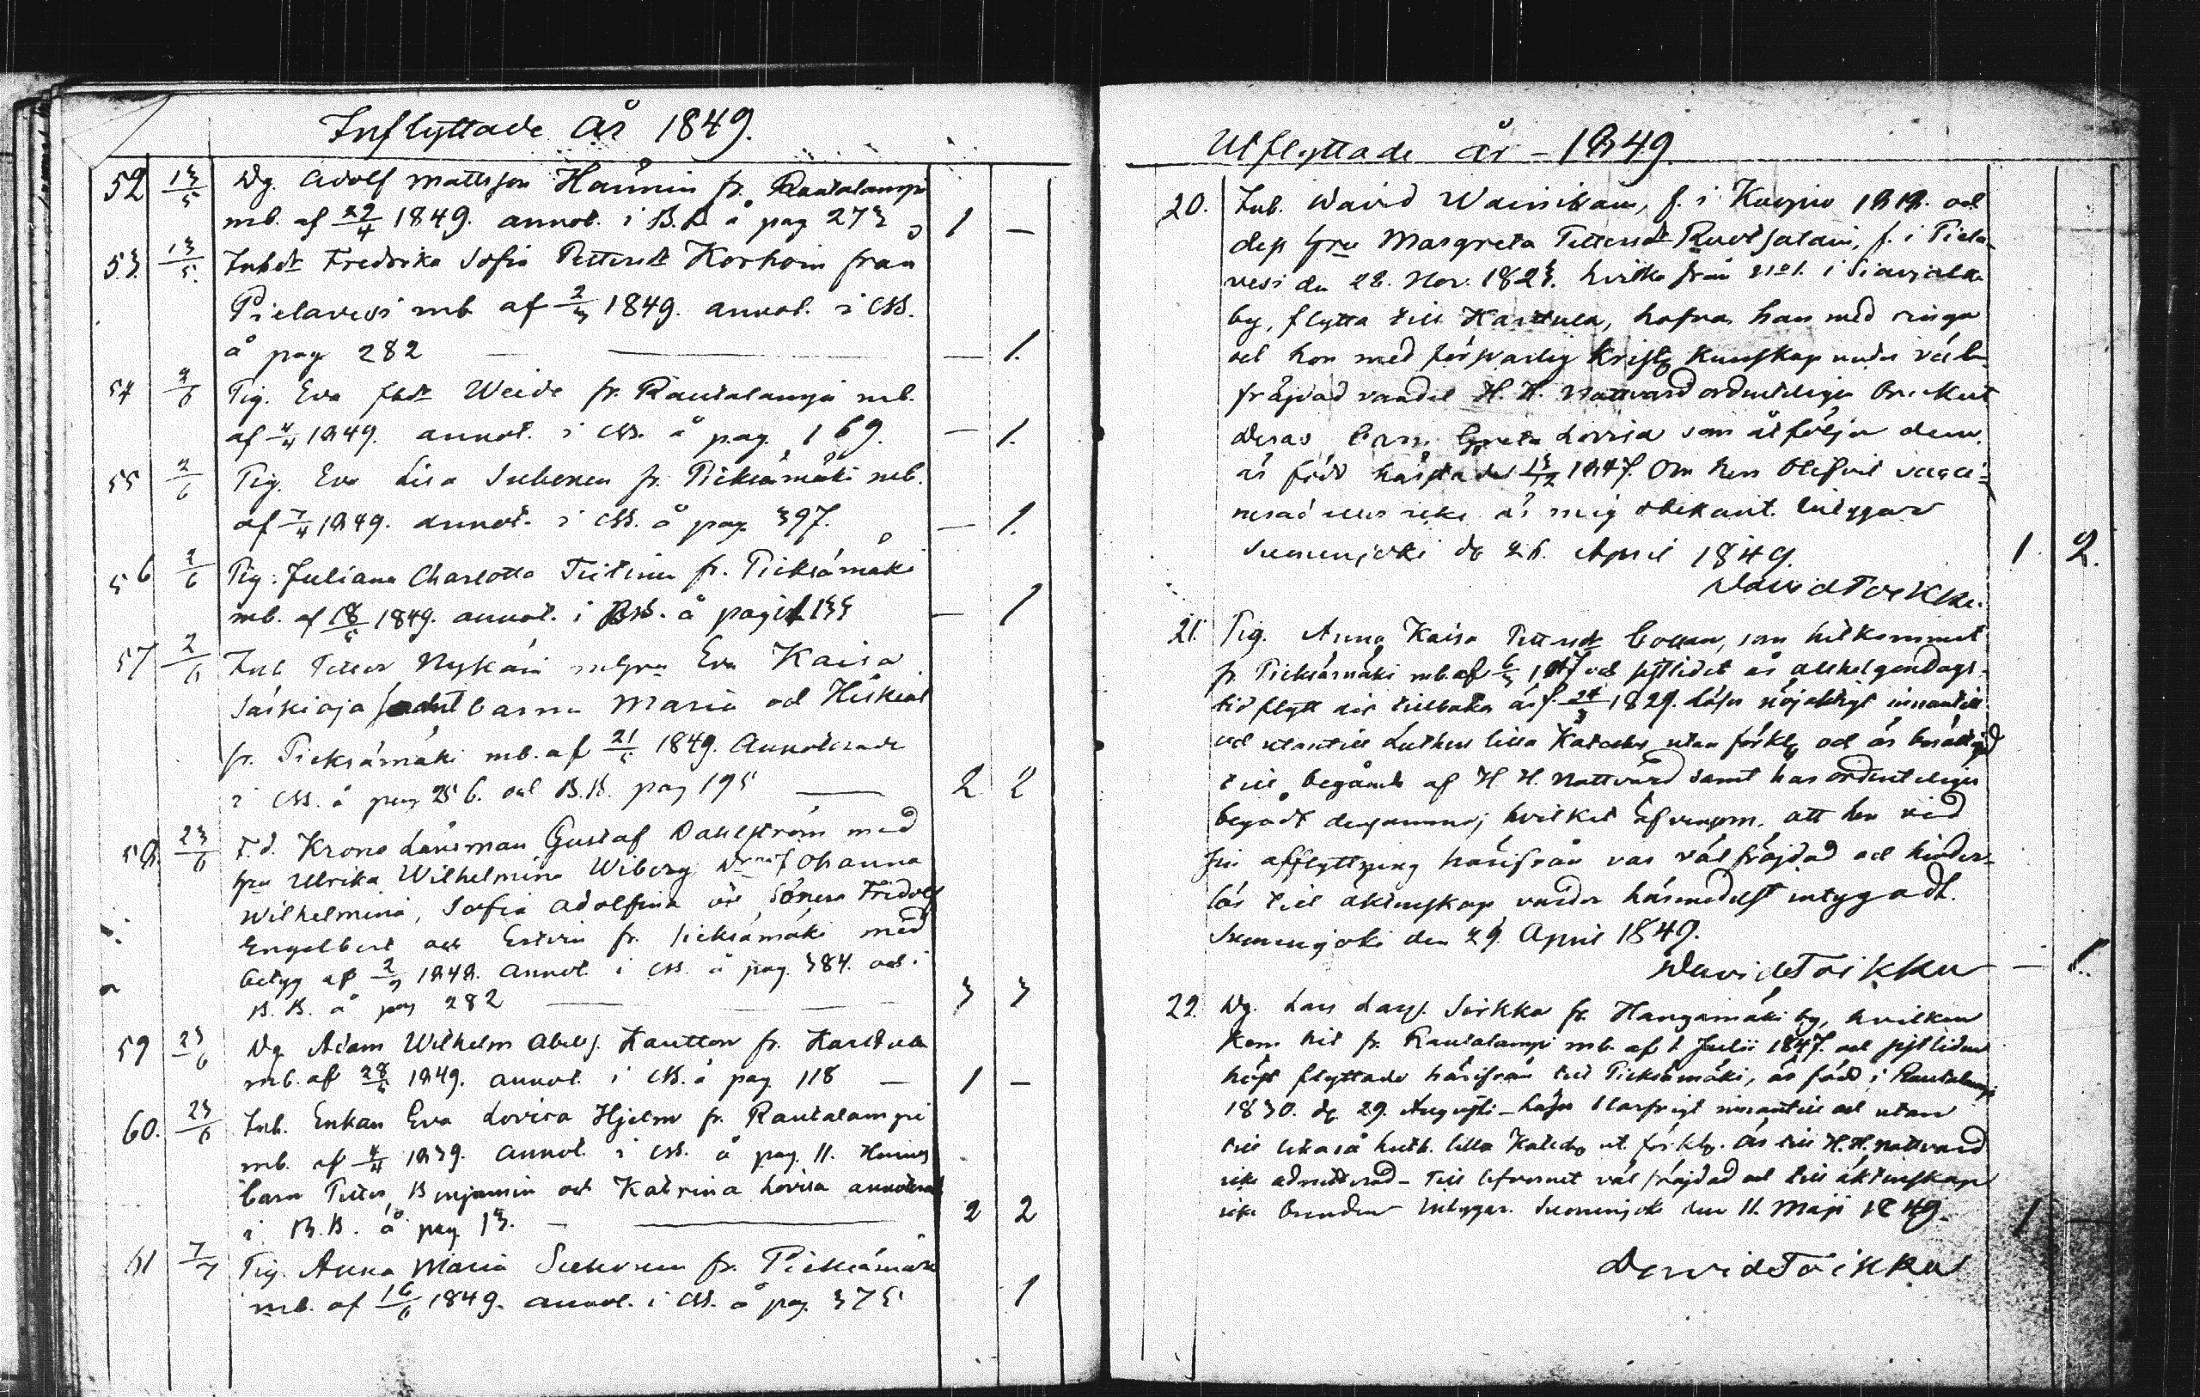 Inflyttade År 1849.
52 13/5 Dg. Adolf Mattsson Hännin fr. Rautalampi
mb. af 29/4 1849. annot. i B.B å pag 273 1 —
53. 13/5. Inhdr Fredrika Sofia Pettersdr Korhoin från
Pielavesi mb af 2/3 1849. annot. i CB.
å pag 282 — 1.
54 2/6 Pig. Eva Weide fr. Rautalampi mb.
af 4/4 1849. annot. i CB. å pag. 169. — 1.
55 2/6 Pig. Eva Lisa fr. Pieksämäki mb.
af 7/4 1849. annot. i CB. å pag 397. — 1.
56 2/6 Pig. Juliana Charlotta Tiitinen fr. Pieksämäki
mb. af 18/5 1849. annot. i å pag — 1
57 2/6 Inh Petter Nykäin m hru Eva Kaisa
barnn Maria och Hiskias
fr. Pieksämäki mb. af 21/5 1849. Annoterade
i CB. å pag 256. och B.B. pag 195 — 2 2
58. 23/6 F.d. Krono Länsman Gustaf Dahlström med
hru Ulrika Wilhelmina Wiberg Johanna
Wilhelmina, Sofia Adolfina och Söner Fridolf
Engelbert och Edvin fr. Pieksämäki med
betyg af 1848. annot. i CB. å pag. 384. och i
B.B. å pag 282 — 3 3
59 23/6 Dg Adam Wilhelm Abels. Kautton fr. Karttula
mb. af 28/5 1849. annot. i CB. å pag 118 — 1 —
60. 23/6 Inh. Enkan Eva Lovisa Hjelm fr. Rautalampi
mb. af 4/4 1839. annot. i CB. å pag. 11. Hennes
barn Petter, Benjamin och Katrina Lovisa annoterade
i B.B. å pag 13. — 2 2
61 7/7 Pig. Anna Maria fr. Pieksämäki
mb. af 16/6 1849. annot. i CB. å pag. 375 1
Utflyttade år - 1849.
20. Inh. David Wainikain, f. i Kuopio 1818. och
dess hru Margreta Pettersdr Ruotsalain, f. i Piela-
vesi den 28. Nov. 1823. hvilka från i
by, flytta till Karttula, hafva han med ringa
och hon med försvarlig Kristl. Kunskap under väl
fräjdad vandel H. H. Nattvard ordentligen Brukat
Deras barn Greta Lovisa som åtföljer dem,
är född härstädes 13/12 1847. Om hon blifvit vacci-
nerad eller icke är mig obekant. Intygar
Suonenjoki den 28. April 1849. 1. 2.
David Toikka.
21. Pig. Anna Kaisa Pettersdr som hitkommit
fr. Pieksämäki mb. af 1847 och sistlidet år allhelgondags-
tid flytt dit tillbaka är f. 24/3 1829. Läser nöjaktigt innantill
och utantill Luthers lilla Kateches utan förkl. och är berättigad
till begående af H. H. Nattvard samt har ordentligen
begått densamma; hvilket äfvensom. att hon vid
sin afflyttning härifrån var väl fräjdad och hinder-
lös till äktenskap varder härmedelst intygadt.
Suonenjoki den 29. April 1849.
David Toikka — 1.
22. Dg. Lars Larss. Sirkka fr. Hangamäki by, hvilken
kom hit fr. Rautalampi mb. af 1. Julii 1847. och sistliden
höst flyttade härifrån till Pieksämäki, är född i Rautalampi
1830. d. 29. Augusti - läser innantill och utan
till likaså Luth. lilla Kateches ut. förkl. Är till H.H. Nattvard
icke admitterad - Till lefvernet väl fräjdad och till äktenskap
icke bunden Intygar. Suonenjoki den 11. Maji 1849. 1 —
David Toikka